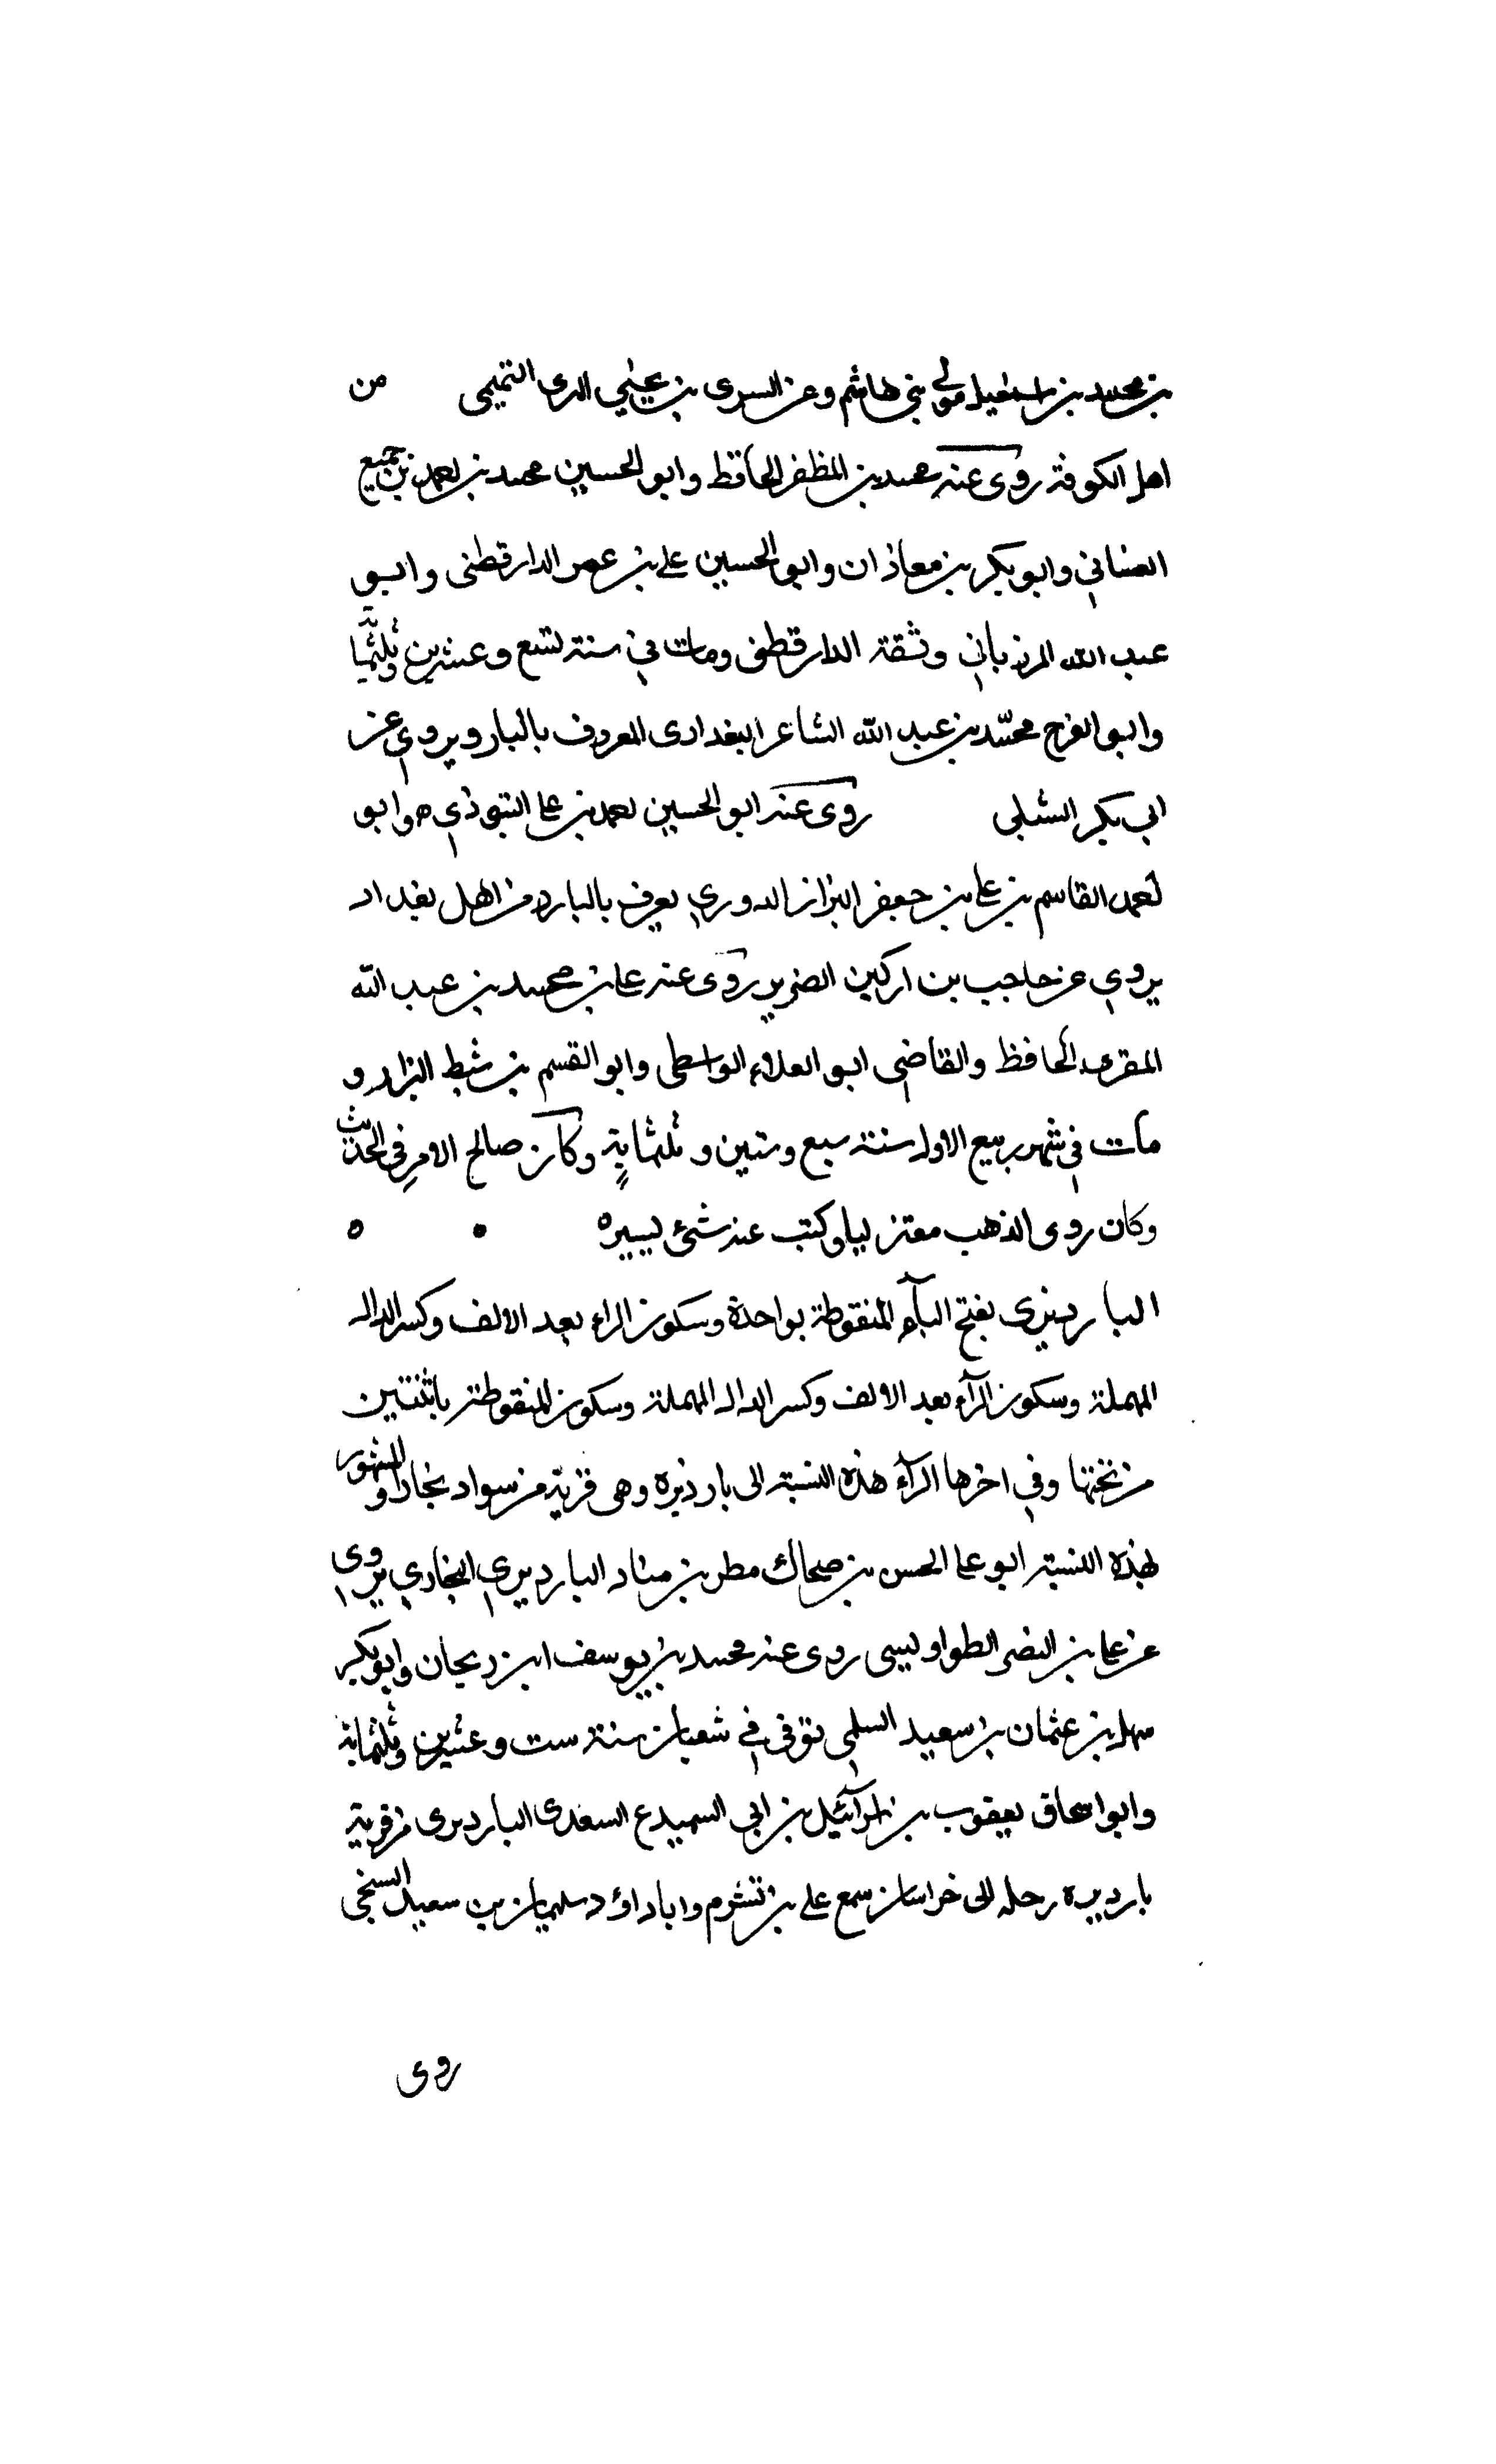 بن محمد بن اسمعيل مولى بني هاشم وعن السرى بن يحيي الدى التميمى من
اهل الكوفة روى عنه محمد بن المظفر الحافظ وابو الحسين محمد بن احمد بن جميع
الغساني وابو بكر بن معاذ ان وابو الحسين على بن عمر الدارقطنى وابو
عبد الله المرزباني وثقة الدارقطنى ومات في سنة تسع وعشرين وثلثما
وابو الفرج محمد بن عبد الله الشاعر البغدادى المعروف بالبارد يروي عن
ابي بكر الشبلى روى عنه ابو الحسين احمد بن على التوزي ٥ وابو
احمد القاسم بن على بن جعفر البزاز الدوري يعرف بالبارد من اهل بغداد
يروي عن حاجب بن اركين الضرير روى عنه على بن محمد بن عبد الله
المقرى الحافظ والقاضي ابو العلاء الواسطى وابو القسم بن شبط البزاز و
مات في شهر ربيع الاول سنة سبع وستين وثلثماية وكان صالح الامر في الحديث
وكان ردى المذهب معتزليا وكتب عنه شئ يسير ٥ ٥
البارديزى بفتح الباء المنقوطة بواحدة وسكون الراء بعد الالف وكسر الدال
المهملة وسكون الرآء بعد الالف وكسر الدال المهملة وسكون المنقوطة باثنتين
من تحتها وفي اخرها الرآء هذه النسبة الى بارديزه وهى قرية من سواد بخارا والمشهور
بهذه النسبة ابو على الحسن بن ضحاك مطر بن هناد البارديزي البخاري يروى
عن على بن النضر الطواويسى روى عنه محمد بن يوسف ابن ريحان وابو بكر
سهل بن عثمان بن سعيد السلمي توفى في شعبان سنة ست وعشرين وثلثماية
وابو اسحاق يعقوب بن اسرآئيل بن ابي السميدع السغدى البارديزى من قرية
بارديزه رحل الى خراسان سمع على بن خشرم وابا داؤد سليمان بن سعيد السنجي
روى